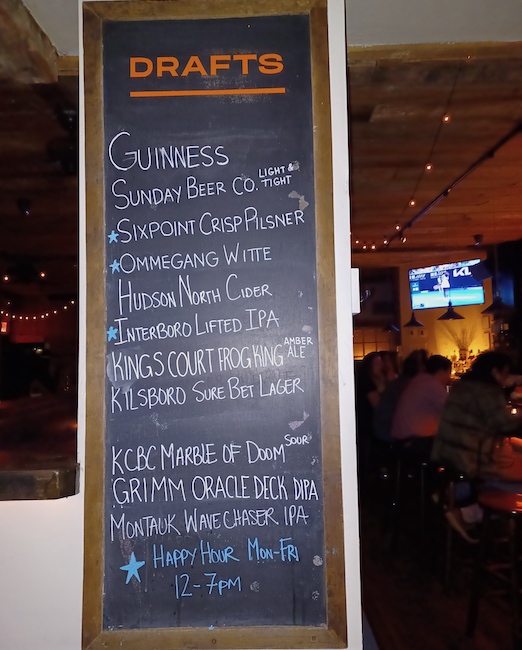 DRAFTS
GUINNESS
SUNDAY BEER CO. LIGHT & TIGHT
SIXPOINT CRISP PILSNER
OMMEGANG WITTE
HUDSON NORTH CIDER
INTERBORO LIFTED IPA
KINGS COURT FROG KING AMBER ALE
KILSBORO SURE BET LAGER
KCBC MARBLE OF DOOM SOUR
GRIMM ORACLE DECK DIPA
MONTAUK WAVE CHASER IPA
HAPPY HOUR MON-FRI
12-7PM
KIA